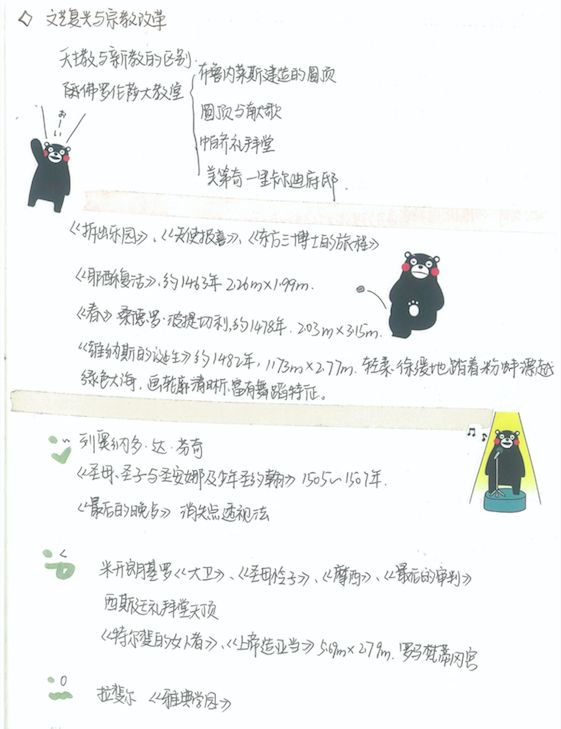 文艺复兴与宗教改革
天主教与新教的区别.
佛罗伦萨大教堂
布鲁内莱斯建造的圆顶
圆顶与献歌
帕齐礼拜堂
美第奇—里卡尔迪府邸.
おーい
《拆出乐园》、《天使报喜》、《东方三博士的旅程》
《耶稣复活》,约1463年 2.26m×1.99m.
《春》桑德罗·波提切利,约1478年. 2.03m×3.15m.
《维纳斯的诞生》约1482年, 1.73m×2.77m. 轻柔、徐缓地踏着粉蚌漂越
绿色大海, 画轮廓清晰、富有舞蹈特征。
列奥纳多·达·芬奇
《圣母、圣子与圣安娜及少年圣约翰》1505~1507年.
《最后的晚点》消失点透视法
米开朗基罗《大卫》、《圣母怜子》、《摩西》、《最后的审判》
西斯廷礼拜堂天顶
《特尔斐的女人者》、《上帝造亚当》5.69m×2.79m. 罗马梵蒂冈宫
拉斐尔 《雅典学园》